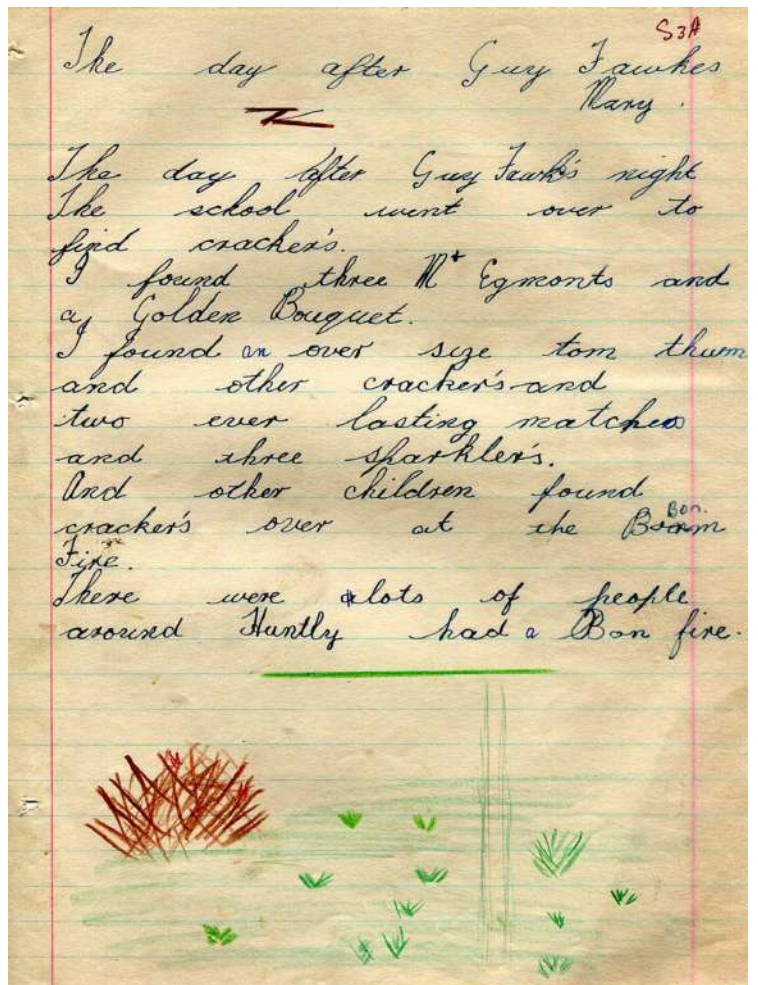 S3A
The day after Guy Fawkes
Mary.
The day after Guy Fawk's night
The school went over to
find cracker's.
I found three Mt Egmonts and
a Golden Bouquet.
I found an over size tom thum
and other cracker's and
two ever lasting matches
and three sparkler's.
And other children found
cracker's over at the Bon
Fire.
There were lots of people
around Huntly had a Bon fire.